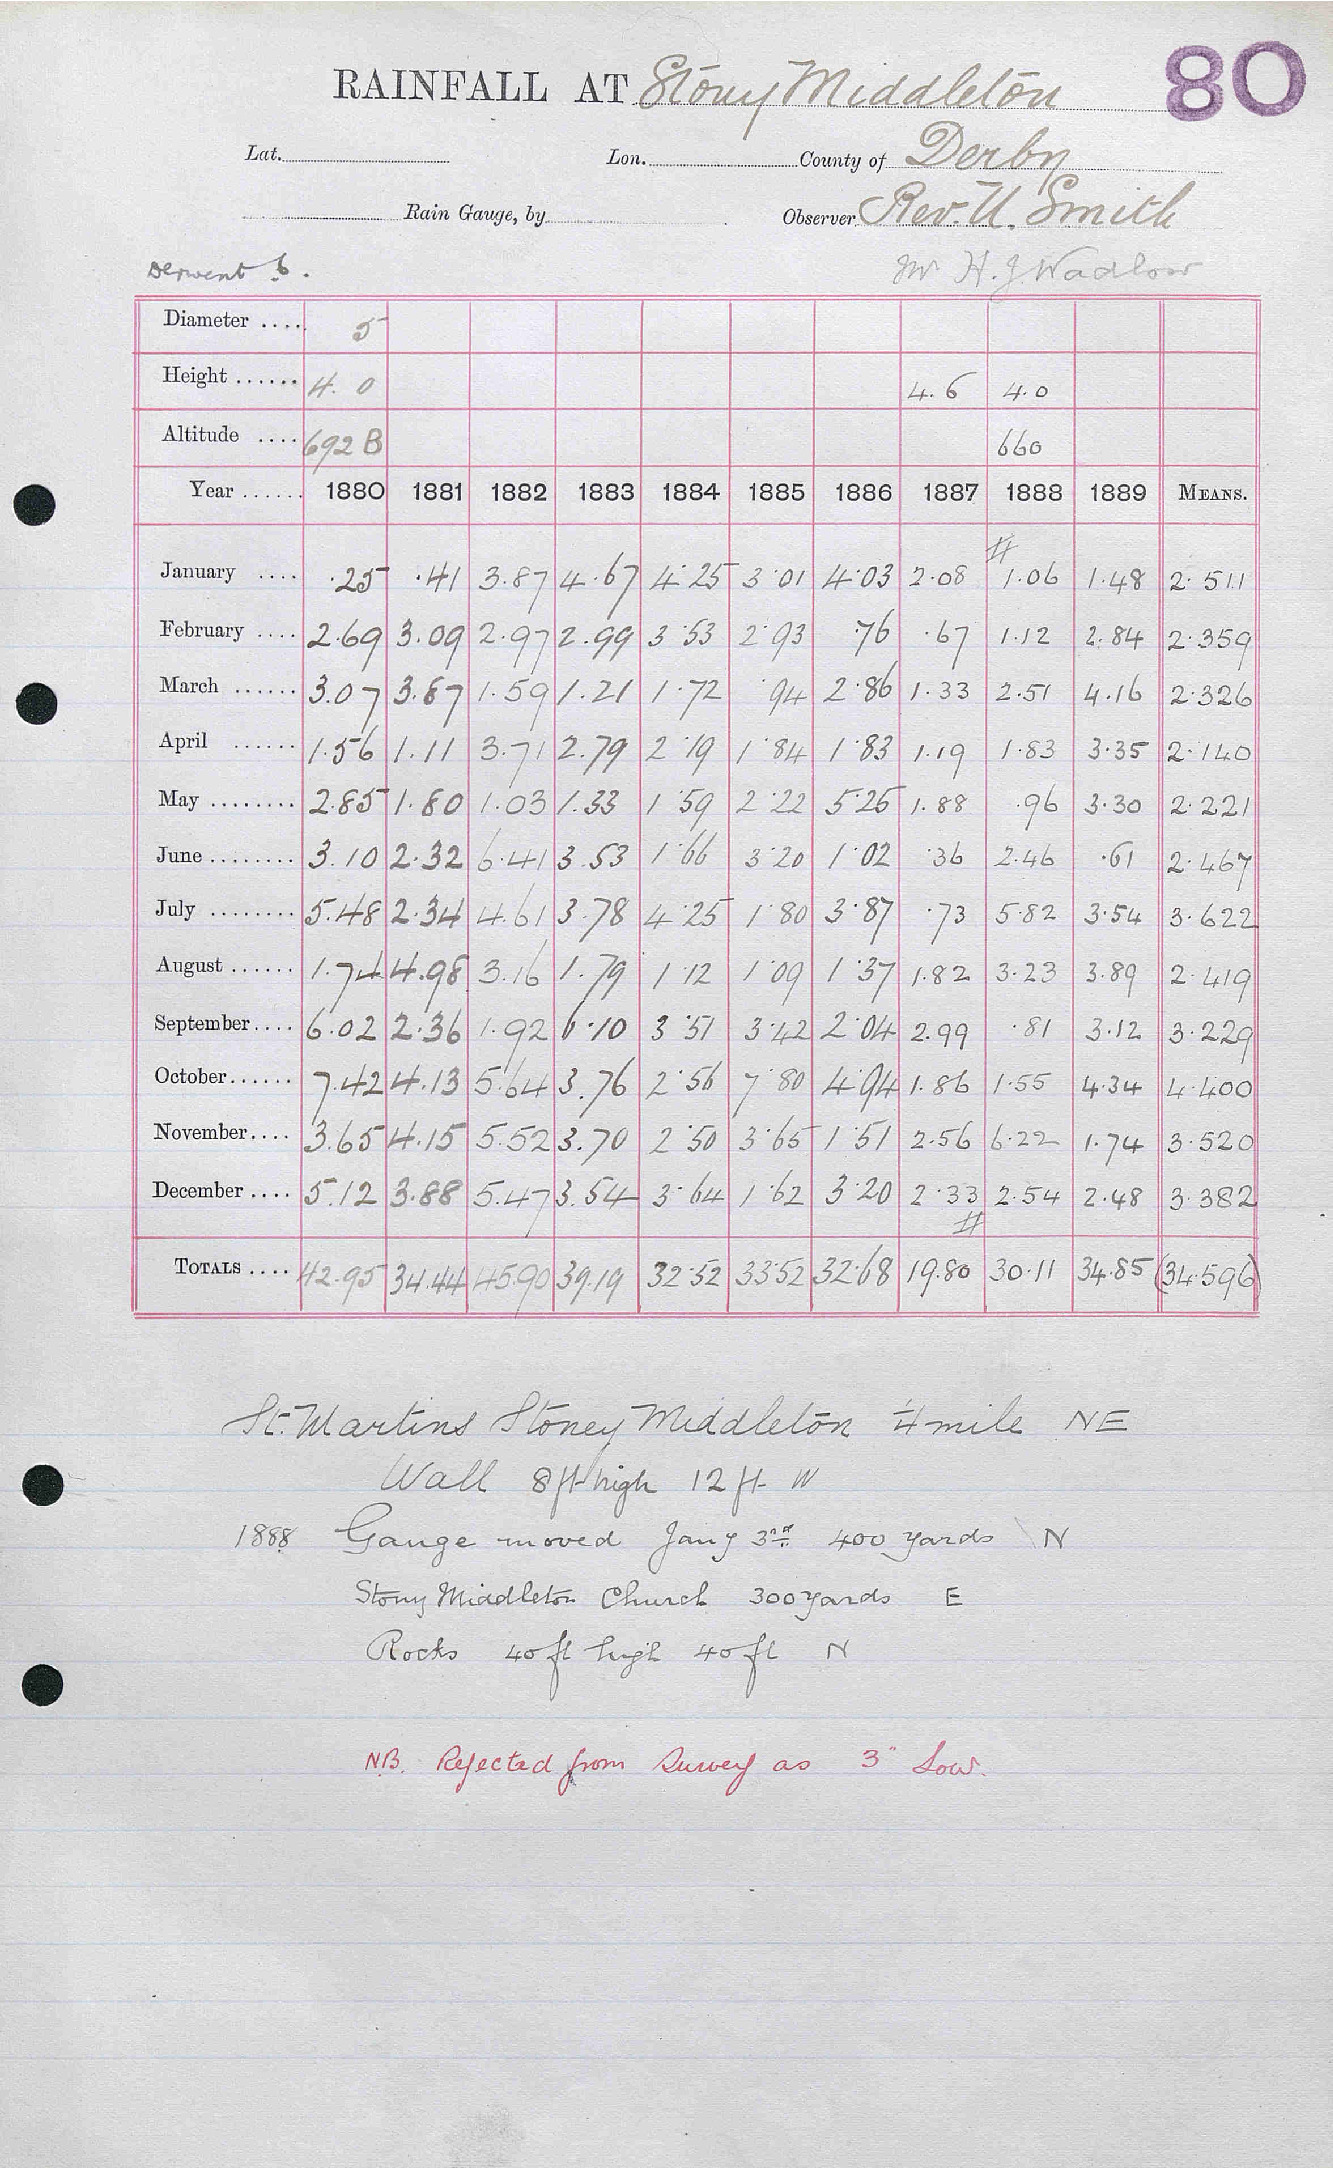 80
RAINFALL AT Stony Middleton
Lat. Lon. County of Derby
Rain Gauge, by Observer Rev. U. Smith
Derwent 6. Mr H. J. Wadlow
Diameter .... 5
Height ...... 4. 0 4.6 4.0
Altitude .... 692 B 660
Year ...... 1880 1881 1882 1883 1884 1885 1886 1887 1888 1889 MEANS.
#
January .... .25 .41 3.87 4.67 4.25 3.01 4.03 2.08 1.06 1.48 2.511
February .... 2.69 3.09 2.97 2.99 3.53 2.93 .76 .67 1.12 2.84 2.359
March ...... 3.07 3.87 1.59 1.21 1.72 .94 2.86 1.33 2.51 4.16 2.326
April ...... 1.56 1.11 3.71 2.79 2.19 1.84 1.83 1.19 1.83 3.35 2.140
May ........ 2.85 1.80 1.03 1.33 1.59 2.22 5.25 1.88 .96 3.30 2.221
June ........ 3.10 2.32 6.41 3.53 1.66 3.20 1.02 .36 2.46 .61 2.467
July ........ 5.48 2.34 4.61 3.78 4.25 1.80 3.87 .73 5.82 3.54 3.622
August ...... 1.74 4.98 3.16 1.79 1.12 1.09 1.37 1.82 3.23 3.89 2.419
September.... 6.02 2.36 1.92 6.10 3.51 3.42 2.04 2.99 .81 3.12 3.229
October...... 7.42 4.13 5.64 3.76 2.56 7.80 4.94 1.86 1.55 4.34 4.400
November.... 3.65 4.15 5.52 3.70 2.50 3.65 1.51 2.56 6.22 1.74 3.520
December .... 5.12 3.88 5.47 3.54 3.64 1.62 3.20 2.33 2.54 2.48 3.382
#
TOTALS .... 42.95 34.44 45.90 39.19 32.52 33.52 32.68 19.80 30.11 34.85 (34.596)
St. Martins Stoney Middleton ¼ mile NE
Wall 8 ft high 12 ft W
1888 Gauge moved Jany 3rd 400 yards N
Stony Middleton Church 300 yards E
Rocks 40 ft high 40 ft N
NB. Rejected from Survey as 3" Low.